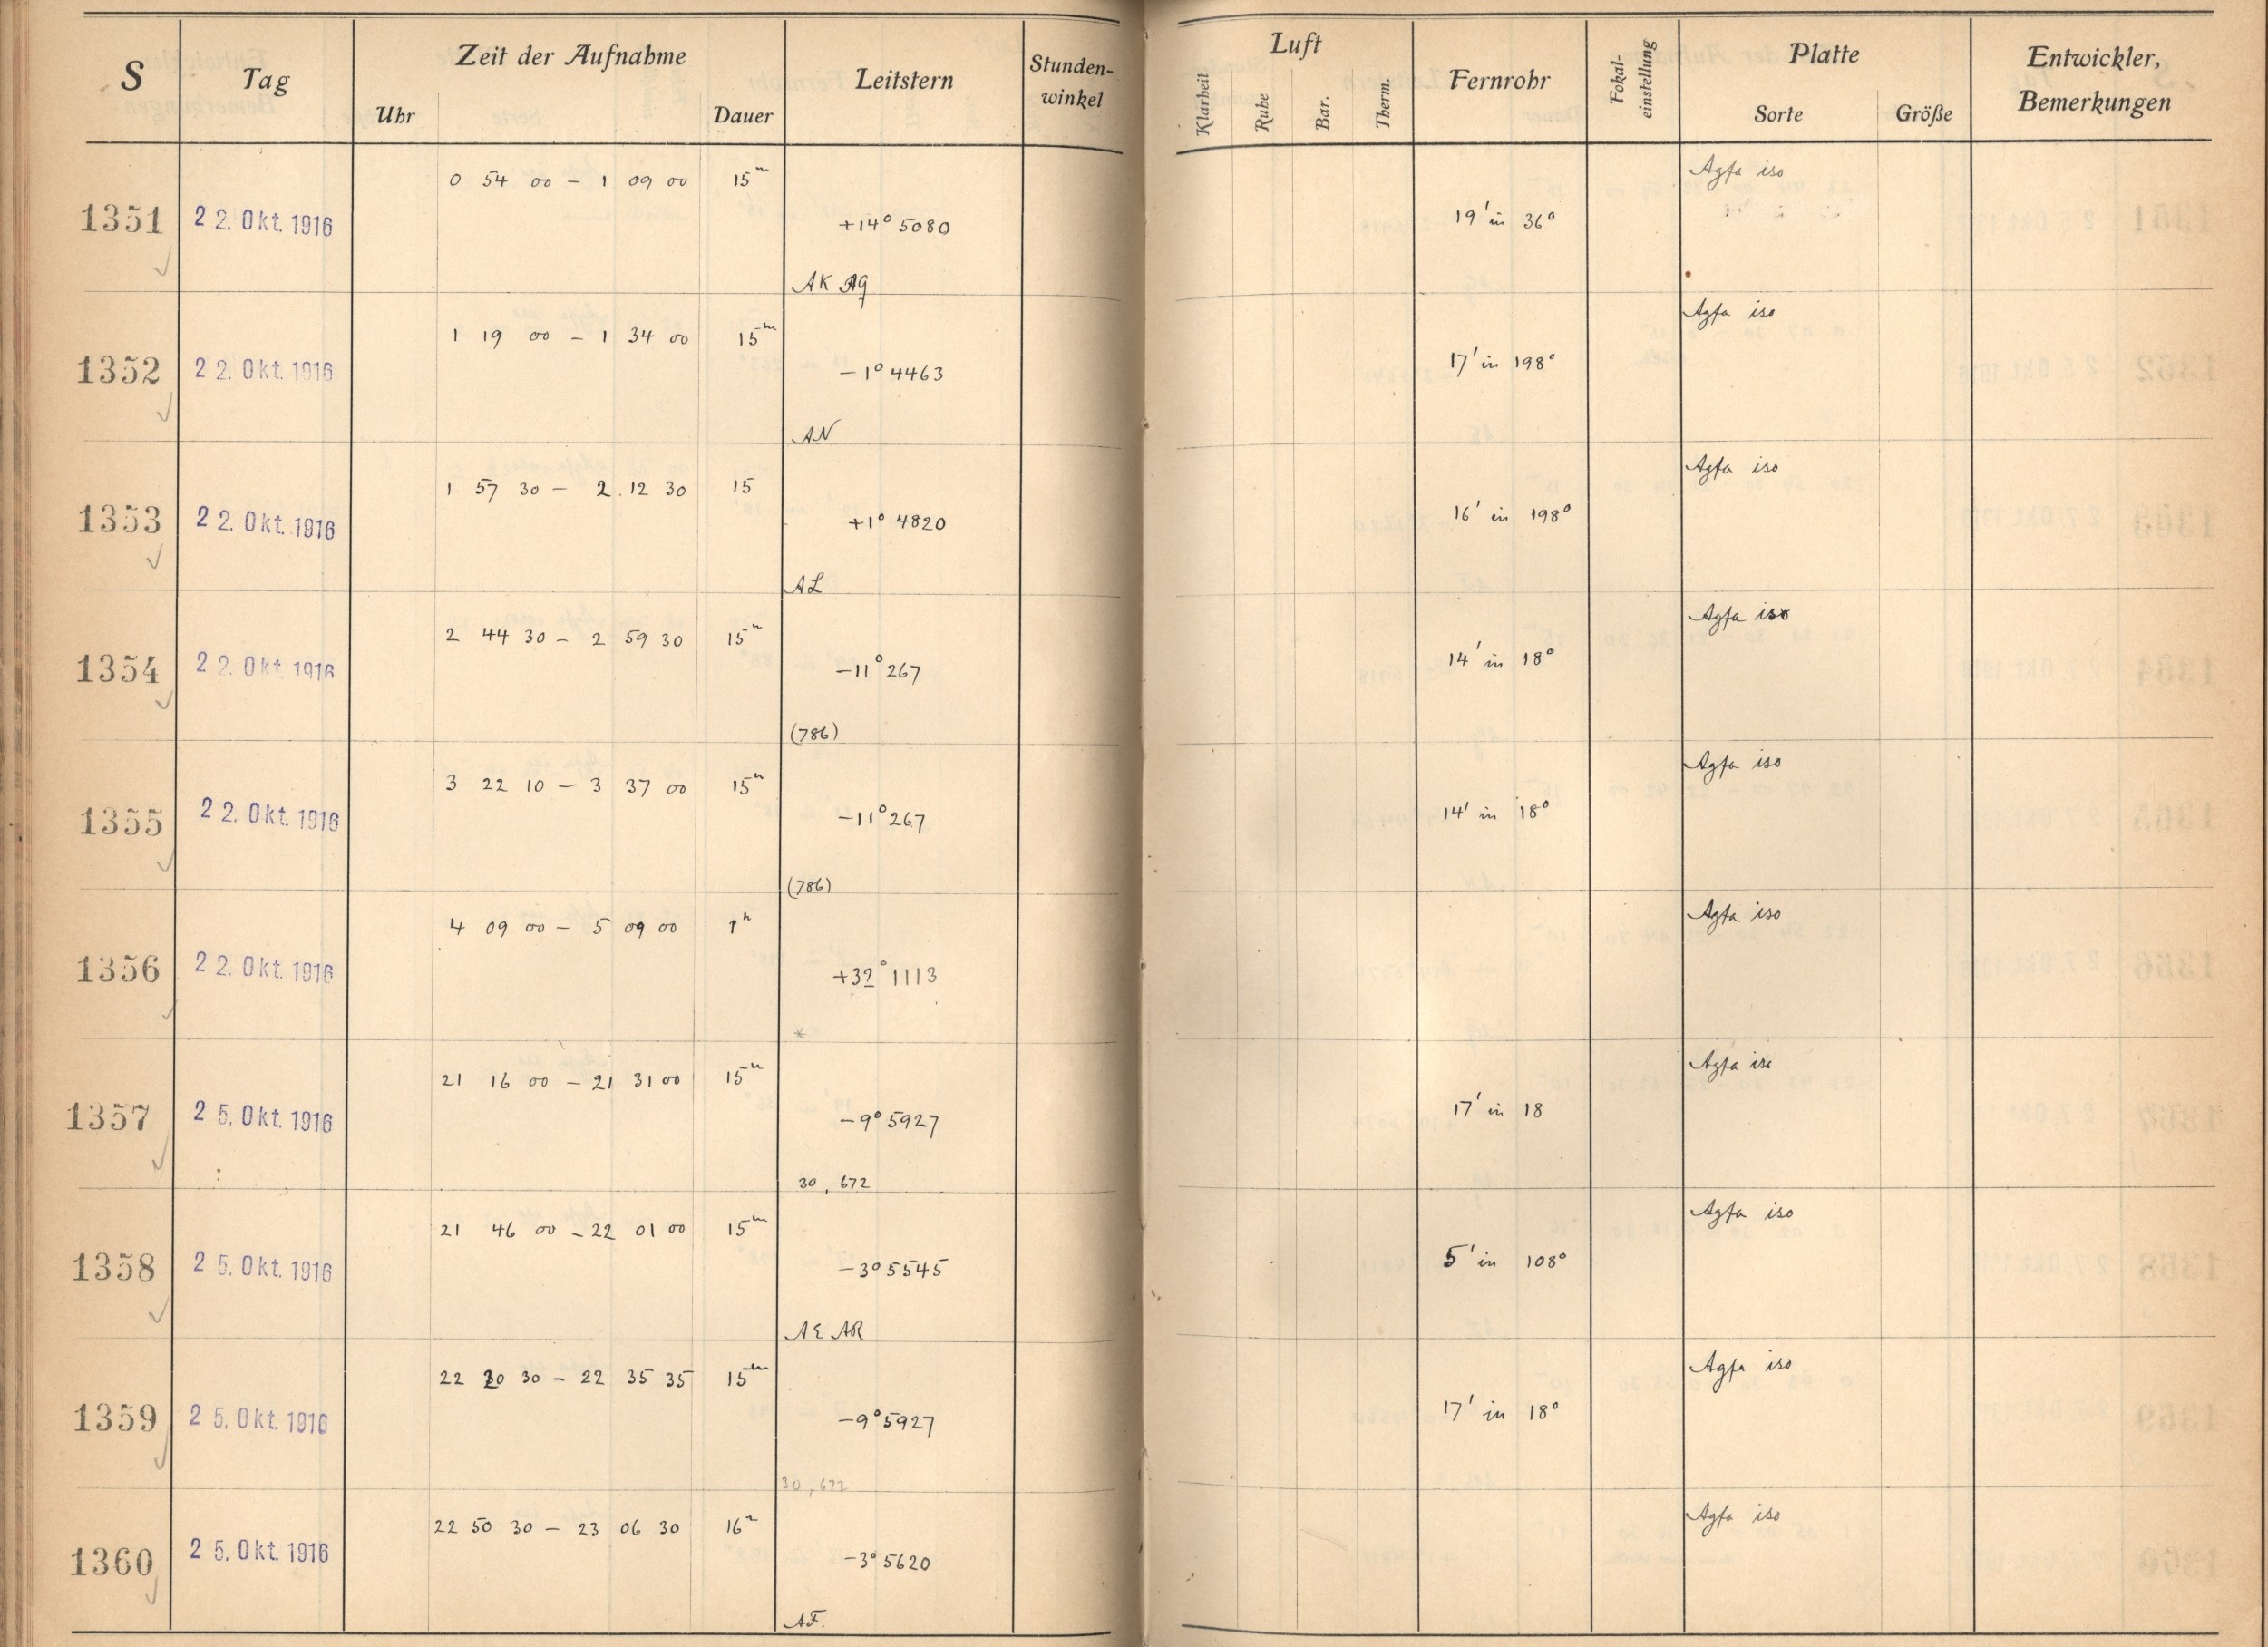 S Tag Zeit der Aufnahme Leitstern Stunden-winkel Luft Fernrohr Fokal-einstellung Platte Entwickler, Bemerkungen
Uhr Dauer Klarheit Ruhe Bar. Therm. Sorte Größe
0 54 00 – 1 09 00 15m Agfa iso
1351 22. Okt. 1916 +14° 5080 19' in 36°
AK AG
1 19 00 – 1 34 00 15m Agfa iso
1352 22. Okt. 1916 –1° 4463 17' in 198°
AN
1 57 30 – 2 12 30 15 Agfa iso
1353 22. Okt. 1916 +1° 4820 16' in 198°
AL
2 44 30 – 2 59 30 15m Agfa iso
1354 22. Okt. 1916 –11° 267 14' in 18°
(786)
3 22 10 – 3 37 00 15m Agfa iso
1355 22. Okt. 1916 –11° 267 14' in 18°
(786)
4 09 00 – 5 09 00 1h Agfa iso
1356 22. Okt. 1916 +32° 1113
*
21 16 00 – 21 31 00 15m Agfa iso
1357 25. Okt. 1916 –9° 5927 17' in 18
30, 672
21 46 00 – 22 01 00 15m Agfa iso
1358 25. Okt. 1916 –3° 5545 5' in 108°
AE AR
22 20 30 – 22 35 35 15m Agfa iso
1359 25. Okt. 1916 –9° 5927 17' in 18°
30, 672
22 50 30 – 23 06 30 16m Agfa iso
1360 25. Okt. 1916 –3° 5620
AF.